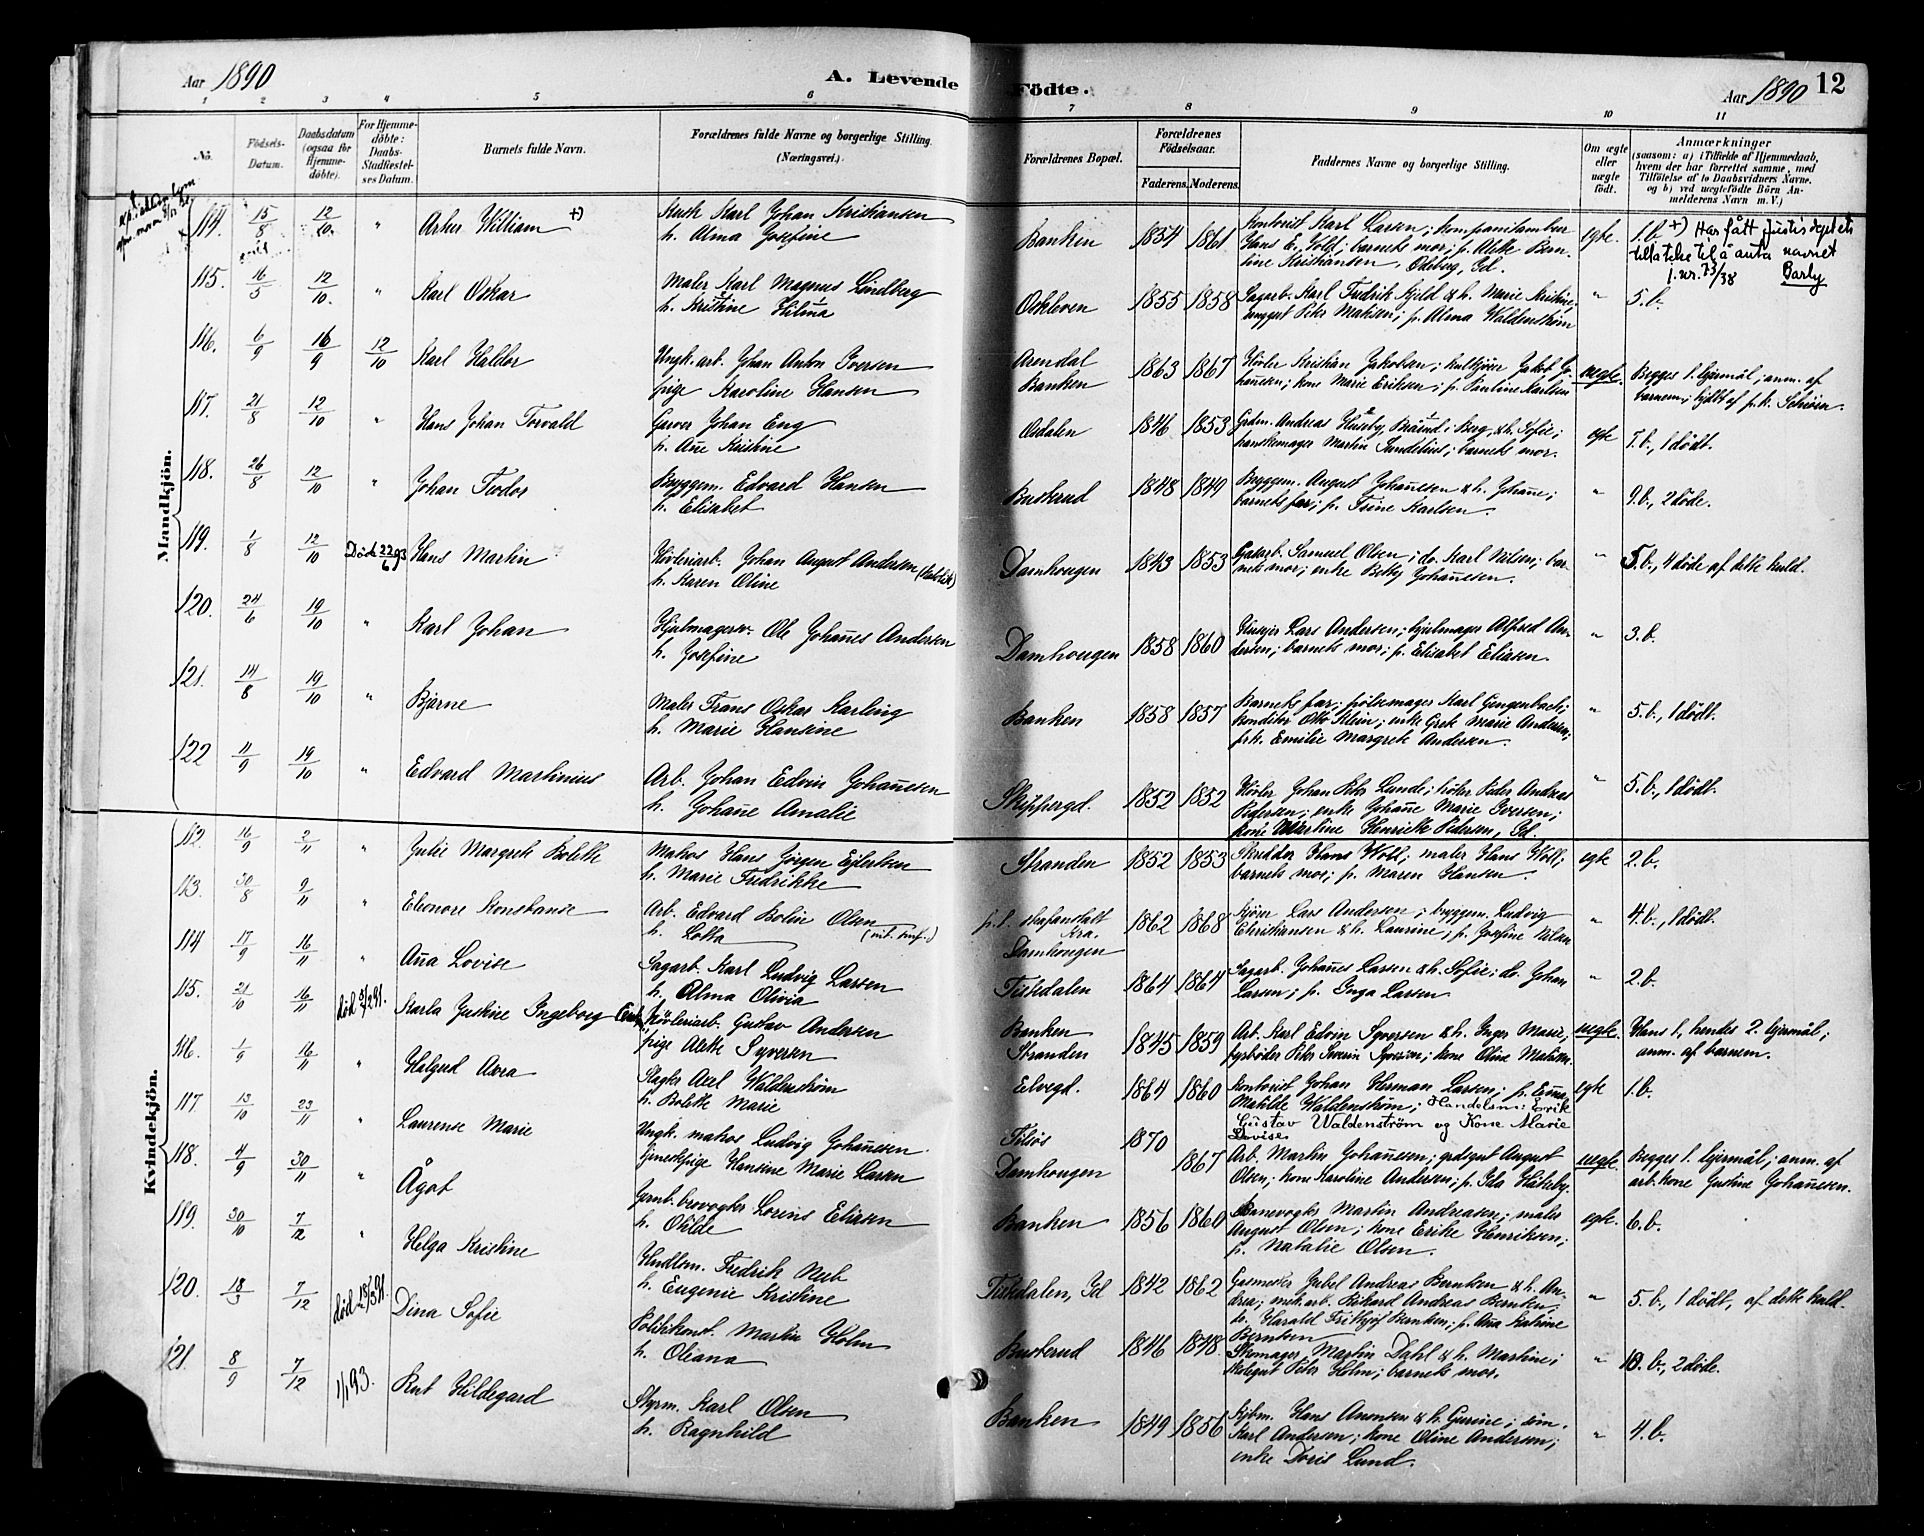 Aar 1890
A. Levende
Födte.
Aar 1890
12
1 2 3 4 5 6 7 8 9 10 11
No.
Födsels-Datum.
Daabsdatum (ogsaa for Hjemme-döbte).
For Hjemme-döbte: Daabs-Stadfæstel-ses Datum.
Barnets fulde Navn.
Forældrenes fulde Navne og borgerlige Stilling. (Næringsvei.)
Forældrenes Bopæl.
Forældrenes Födselsaar.
Faderens. Moderens.
Faddernes Navne og borgerlige Stilling.
Om ægte eller uægte födt.
Anmærkninger
(saasom: a) i Tilfælde af Hjemmedaab, hvem der har forrettet samme, med Tilföielse af to Daabsvidners Navne. og b) ved uægtefödte Börn Anmelderens Navn m. V.)
Mandkjön.
114. 15/8 12/10 " William +)
Karl Johan Kristiansen
h. Alma Josefine
Banken 1854 1861
Kontorist Karl Larsen;
egte. 1.b. +) Har fått Justisdeptets
tillatelse til å anta navnet
Barly
115. 16/5 12/10 " Karl Oskar
Maler Karl Magnus Lindberg
h. Kristine Hilma
1855 1858
Sagarb. Karl Fredrik Kjeld & h. Marie Kristine;
p. Alma Waldenstrøm
" 5.b.
116. 6/9 16/9 12/10 Karl Haldor
Ungk. arb. Johan Anton Iversen
pige Karoline Hansen
Arendal
Banken 1863 1867
Kristian Jakobsen; Jakob Jo-
hansen; kone Marie Eriksen; p. Pauline Karlsen
uegte. Begges 1. lejermål; anm. af
117. 21/8 12/10 " Hans Johan Torvald
Garver Johan Eng
h. Ane Kristine
Osdalen 1846 1853
Grdm. Andreas Huseby, Berg, & h. Sofie;
hanskemager Martin Sundelius; barnets mor.
egte 7.b., 1 dødt.
118. 26/8 12/10 " Johan Teodor
Byggem. Edvard Hansen
h. Elisabet
Buskerud 1848 1849
Byggem. August Johansen & h. Johane;
barnets far; p. Trine Karlsen.
" 9.b., 2 døde.
119. 1/8 12/10 Død 22/6 93 Hans Martin
Høvleriarb. Johan August Andersen
h. Karen Oline
Damhougen 1843 1853
Samuel Olsen; do. Karl Nilsen; bar-
nets mor; enke Betty Johannesen.
" 5.b., 4 døde af dette kuld.
120. 24/6 19/10 " Karl Johan
Hjulmagersv. Ole Johannes Andersen
h. Josefine
Damhougen 1858 1860
Lars Andersen; hjulmager Alfred An-
dersen; barnets mor; p. Elisabet Eliasen.
" 3.b.
121. 14/8 19/10 " Bjarne
Maler Frans Oskar Karling
h. Marie Hansine
Banken 1858 1857
Barnets far; pølsemager Karl Gingenbach;
konditor Otto Klein; enke Grete Marie Andersen;
frk. Emilie Margrete Andersen.
" 5.b., 1 dødt.
122 11/9 19/10 " Edvard Martinius
Arb. Johan Edvin Johannesen
h. Johanne Amalie
Skippergd. 1852 1852
Johan Peter Lunde; Peder Andreas
Pedersen; enke Johanne Marie Iversen;
kone Martine Henriette Pedersen, Id.
" 5.b., 1 dødt.
Kvindekjön.
112. 16/9 2/11 " Julie Margrete Bolette
Matros Hans Jørgen Ejlertsen
h. Marie Fredrikke
Stranden 1852 1853
Skrædder Hans Woll; maler Hans Woll;
barnets mor; p. Maren Hansen.
egte 2.b.
113. 30/8 9/11 " Eleonore Konstanse
Arb. Edvard Bolin Olsen
h. Lotta
Kra.
Damhougen 1862 1868
Lars Andersen; byggem. Ludvig
Christiansen & h. Laurine; p. Josefine Nilsen
" 4.b., 1 dødt.
114 17/9 16/11 " Anna Lovise
Sagarb. Karl Ludvig Larsen
h. Alma Olivia
Tistedalen 1864 1864
Sagarb. Johannes Larsen & h. Sofie; do. Johan
Larsen; p. Inga Larsen
" 2.b.
115. 21/10 16/11 død 5/2 91. Karla Justine Ingeborg
Høvleriarb. Gustav Andersen
pige Alette Syversen
Banken
Stranden 1845 1859
Arb. Karl Edvin Syversen & h. Inger Marie;
fyrbøder Peter Severin Syversen; kone Oline Mathisen.
uegte. Hans 1, hendes 2. lejermål;
anm. af barnem.
116. 1/9 16/11 " Helgerd Aura
Slagter Axel Waldenstrøm
h. Bolette Marie
Elvegd. 1864 1860
Kontorist Johan Herman Larsen; p. Emma
Matilde Waldenstrøm; Handelsm: Enrik
Gustav Waldenström og Kone Marie
Lovise.
egte 1.b.
117. 13/10 23/11 " Laurense Marie
Ungk. matros Ludvig Johannesen
pige Hansine Marie Larsen
1870
Damhougen 1867
Arb. Martin Johannesen; August
Olsen; kone Karoline Andersen; p. Ida
uegte. Begges 1. lejermål; anm. af
arb. kone Justine Johannesen.
118. 4/9 30/11 " Ågot
Jernb. brovogter Lorens Eliasen
h. Otilde
Banken 1856 1860
Banevogter Martin Andreasen; maler
August Olsen; kone Erike Henriksen;
p. Natalie Olsen.
egte. 6.b.
119. 30/10 7/12 " Helga Kristine
Handlsm. Fredrik Neeb
h. Eugenie Kristine
Tistedalen, Id 1842 1862
Andreas Berntsen & h. An-
drea; Rikard Andreas Berntsen;
do. Harald Fritjof Berntsen; p. Anna Katrine
Berntsen
" 5.b., 1 dødt, af dette kuld.
120. 18/3 7/12 død Dina Sofie
Politikonst. Martin Holm
h. Oliana
Buskerud 1846 1848
Skomager Martin Dahl & h. Martine;
Peter Holm; barnets mor.
" 10.b., 2 døde.
121. 8/9 7/12 1/1 93. Rut Hildegard
Styrm. Karl Olsen
h. Ragnhild
Banken 1849 1856
Kjbm. Hans Anonsen & h. Gurine;
Karl Andersen; kone Oline Andersen;
enke Doris Lund.
" 4.b.